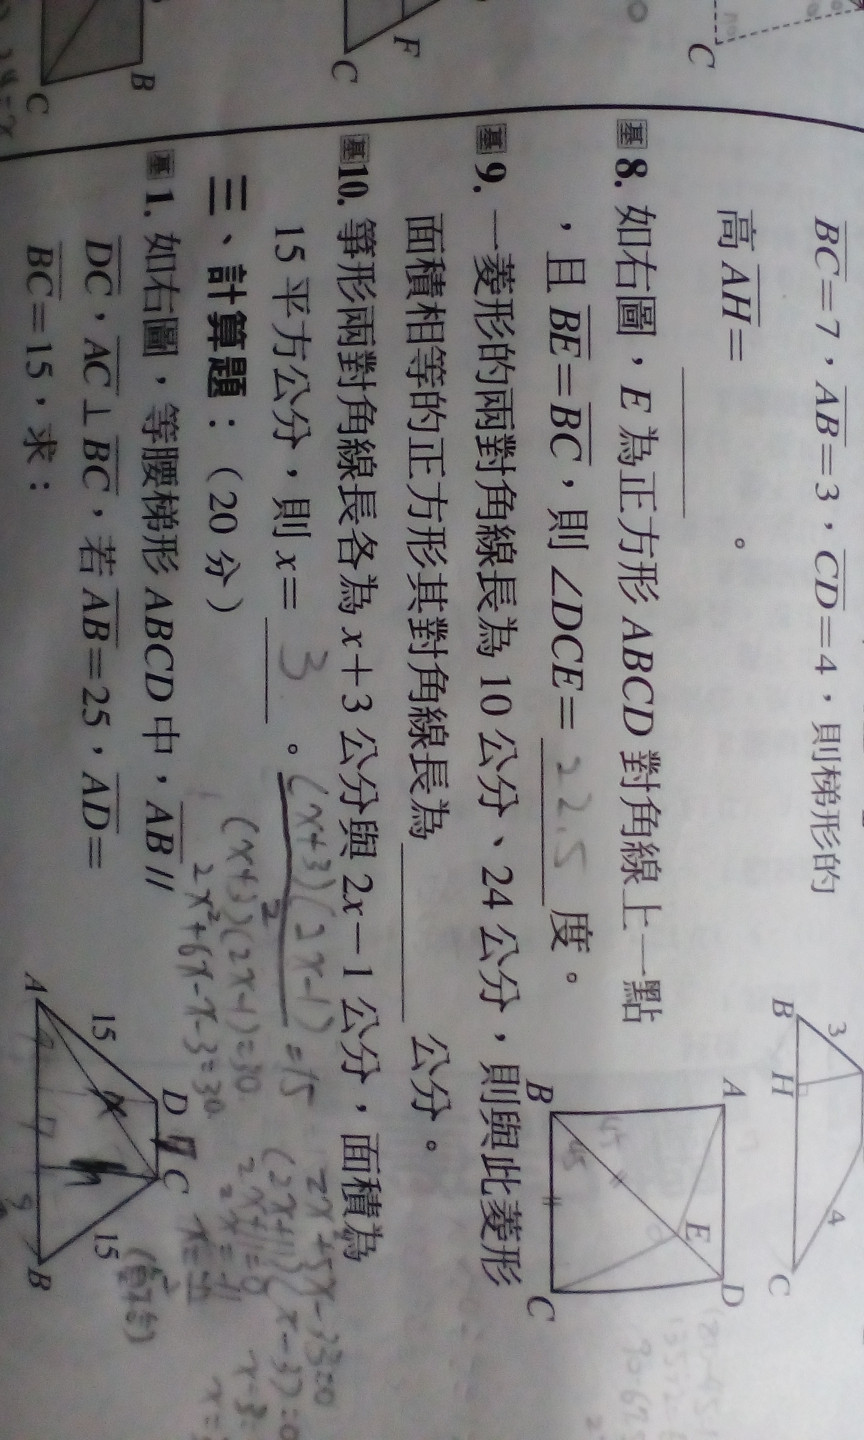 BC=7，AB=3，CD=4，則梯形的
高 AH= 。
基 8. 如右圖，E 為正方形 ABCD 對角線上一點
，且 BE=BC，則 ∠DCE= 22.5 度。
基 9. 一菱形的兩對角線長為 10 公分、24 公分，則與此菱形
面積相等的正方形其對角線長為 公分。
基 10. 箏形兩對角線長各為 x+3 公分與 2x-1 公分，面積為
15 平方公分，則 x= 3 。
(x+3)(2x-1)
2
=15
(x+3)(2x-1)=30
2x²+6x-x-3=30
2x²+5x-33=0
(2x+11)(x-3)=0
2x+11=0
2x=-11
三、計算題：（20 分）
基 1. 如右圖，等腰梯形 ABCD 中，AB //
DC，AC⊥BC，若 AB=25，AD=
BC=15，求：
B
3
H
4
C
A
B
45
45
E
D
C
A
15
D
C
15
B
C
F
C
B
C